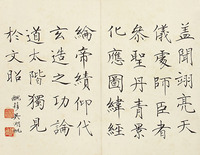 蓋聞翊亮天
儀處師臣者
參聖丹青景
化應圖緯經
綸帝績仰代
玄造之功論
道太階獨見
於文昭
吳湖帆